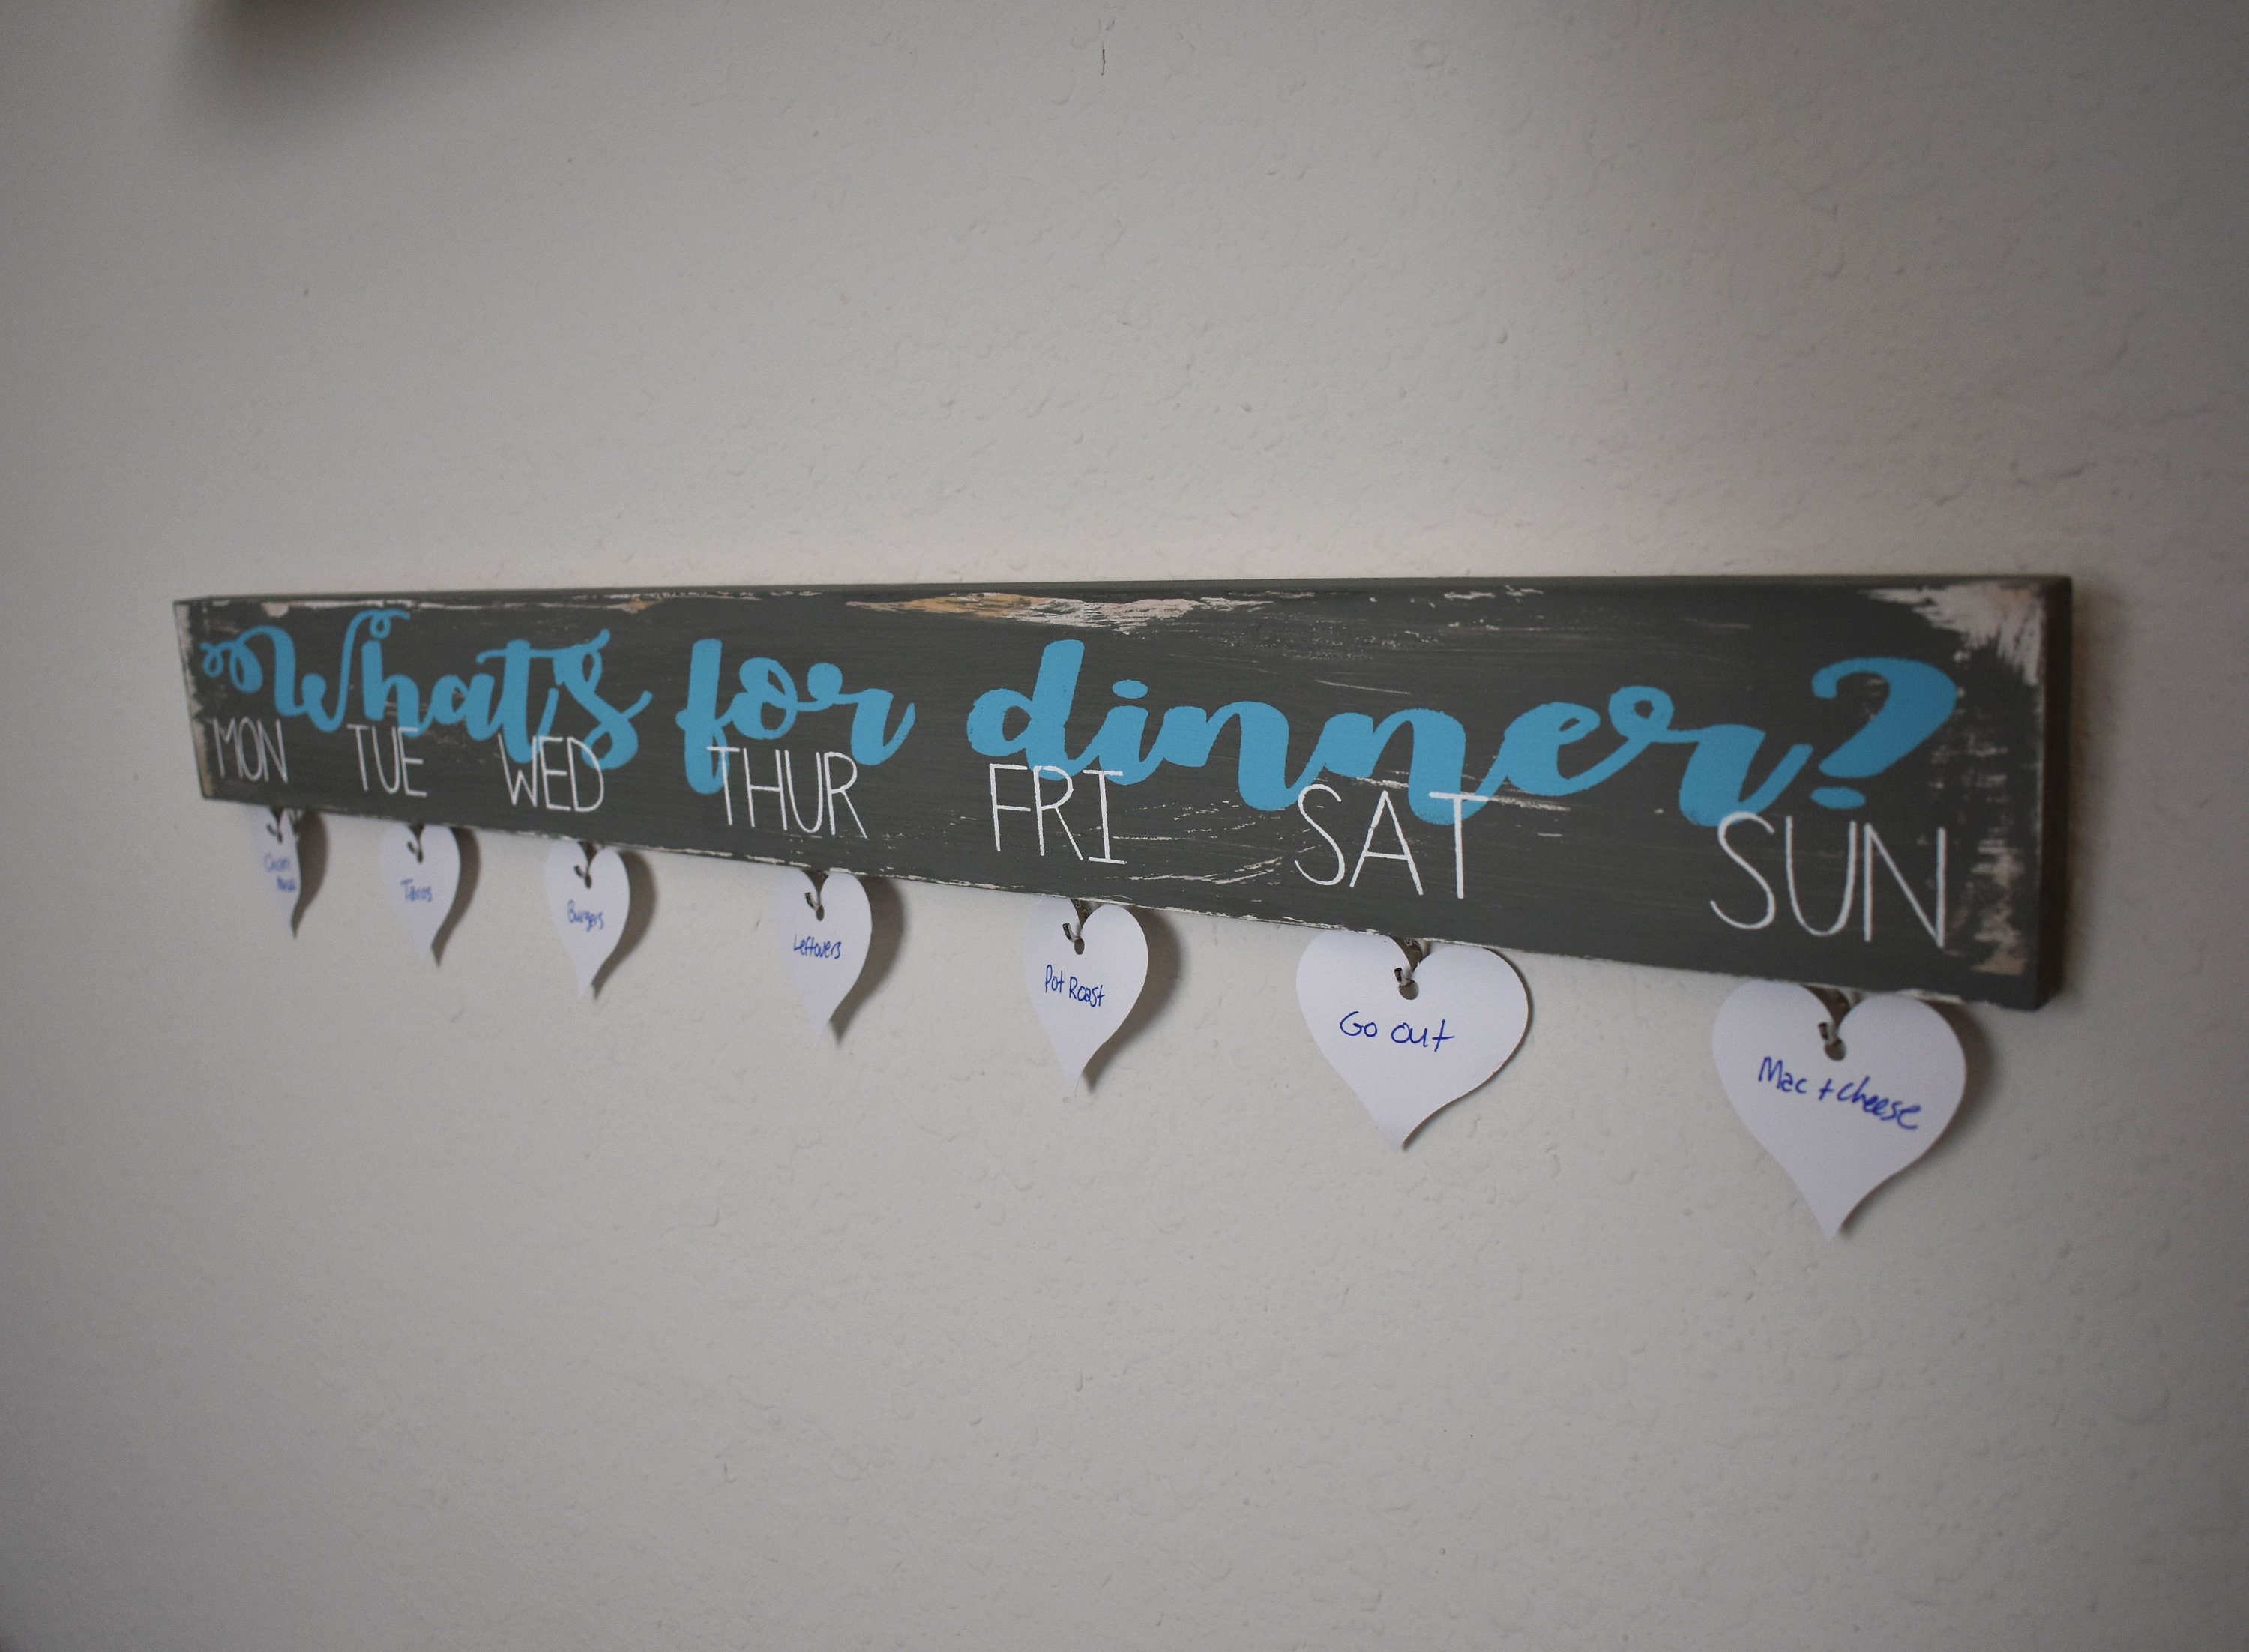 What's for dinner?
MON TUE WED THUR FRI SAT SUN
Tacos
Burgers
Leftovers
Pot Roast
Go out
Mac + cheese